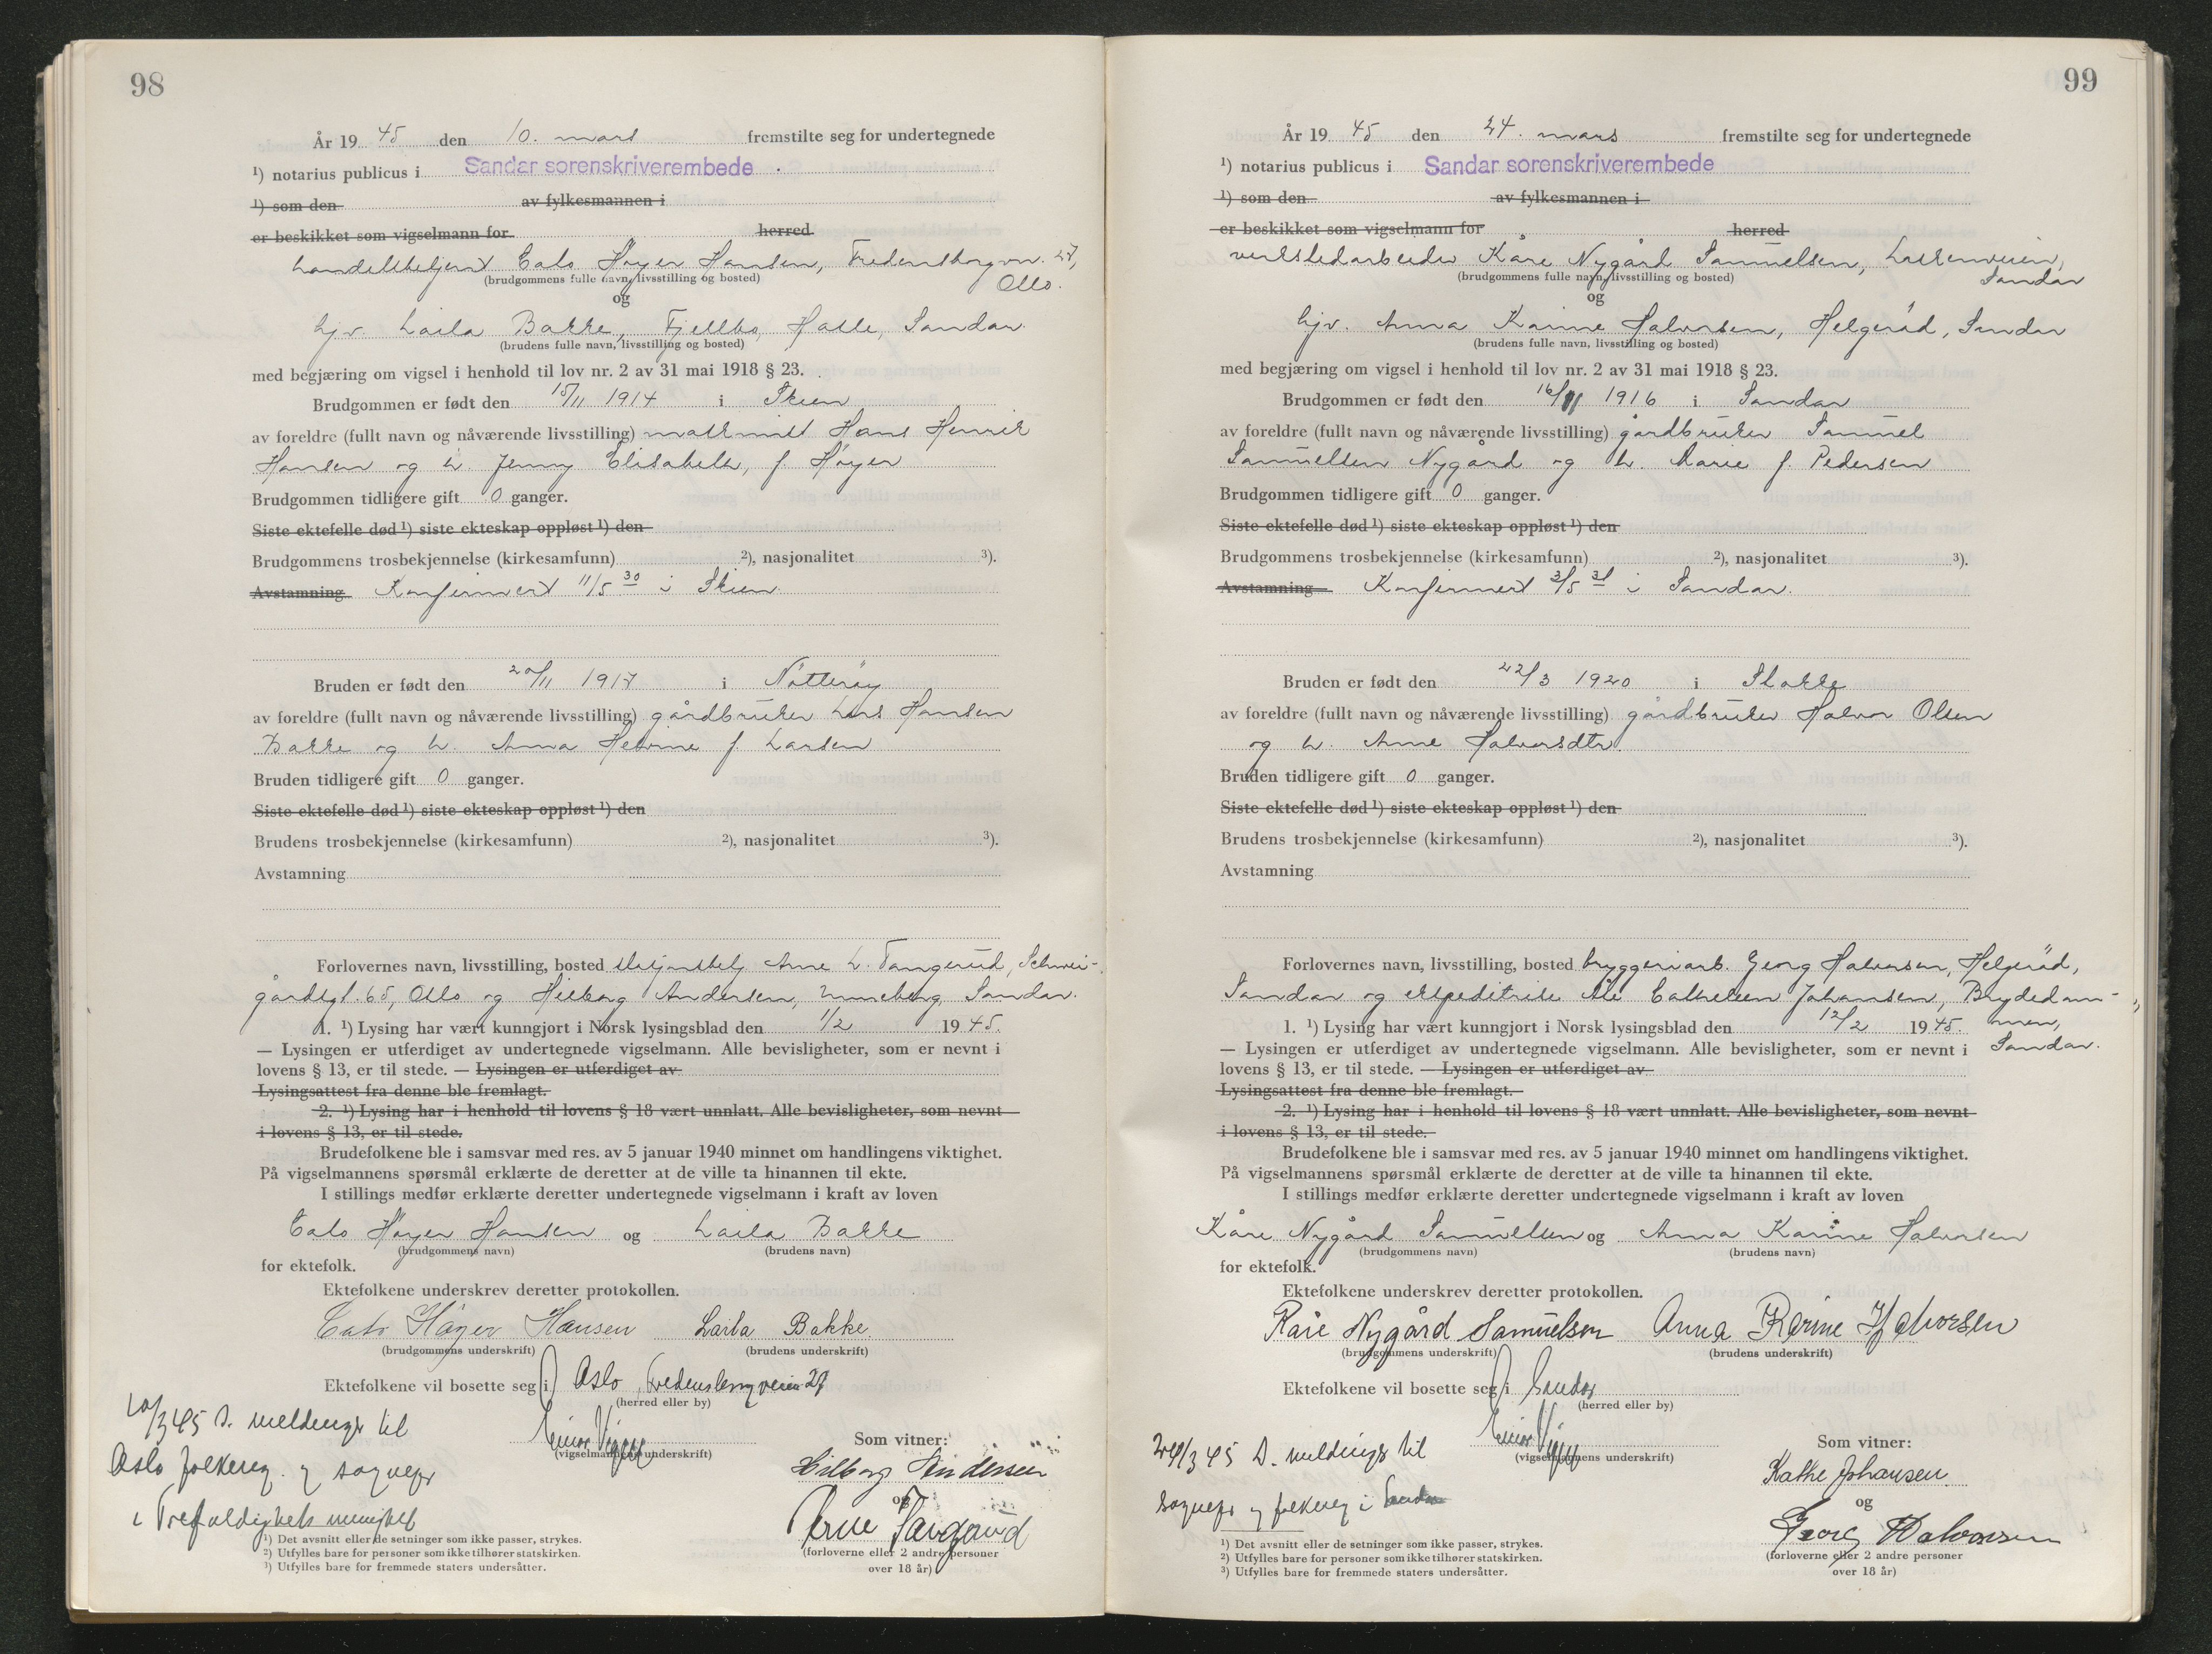 98
År 19 45 den 10. mars fremstilte seg for undertegnede
¹) notarius publicus i Sandar sorenskriverembede.
¹) som den av fylkesmannen i
er beskikket som vigselmann for herred
handelsbetjent Cato Høyer Hansen, Fredensborgvn. 27,
(brudgommens fulle navn, livsstilling og bosted) Oslo.
og
hjv. Laila Bakke, Fjellbo, Hasle, Sandar.
(brudens fulle navn, livsstilling og bosted)
med begjæring om vigsel i henhold til lov nr. 2 av 31 mai 1918 § 23.
Brudgommen er født den 15/11 1914 i Skien
av foreldre (fullt navn og nåværende livsstilling) maskinist Hans Henrik
Hansen og h. Jenny Elisabeth, f. Høyer
Brudgommen tidligere gift 0 ganger.
Siste ektefelle død ¹) siste ekteskap oppløst ¹) den
Brudgommens trosbekjennelse (kirkesamfunn) ²), nasjonalitet ³).
Avstamning Konfirmert 11/5 30 i Skien.
Bruden er født den 20/11 1917 i Nøtterøy
av foreldre (fullt navn og nåværende livsstilling) gårdbruker Lars Hansen
Bakke og h. Anna Helvine f. Larsen
Bruden tidligere gift 0 ganger.
Siste ektefelle død ¹) siste ekteskap oppløst ¹) den
Brudens trosbekjennelse (kirkesamfunn) ²), nasjonalitet ³).
Avstamning
Forlovernes navn, livsstilling, bosted Arne L. Tangerud, Schwei-
gårdsgt. 65, Oslo og Hilborg Andersen, Unneberg, Sandar.
1. ¹) Lysing har vært kunngjort i Norsk lysingsblad den 1/2 19 45.
— Lysingen er utferdiget av undertegnede vigselmann. Alle bevisligheter, som er nevnt i
lovens § 13, er til stede. — Lysingen er utferdiget av
Lysingsattest fra denne ble fremlagt.
2. ¹) Lysing har i henhold til lovens § 18 vært unnlatt. Alle bevisligheter, som nevnt
i lovens § 13, er til stede.
Brudefolkene ble i samsvar med res. av 5 januar 1940 minnet om handlingens viktighet.
På vigselmannens spørsmål erklærte de deretter at de ville ta hinannen til ekte.
I stillings medfør erklærte deretter undertegnede vigselmann i kraft av loven
Cato Høyer Hansen og Laila Bakke
(brudgommens navn) (brudens navn)
for ektefolk.
Ektefolkene underskrev deretter protokollen.
Cato Høyer Hansen Laila Bakke.
(brudgommens underskrift) (brudens underskrift)
Ektefolkene vil bosette seg i Oslo, Fredensborgveien 27
(herred eller by)
10/3 45 D. meldinger til
Oslo folkereg. og sognepr
i Trefoldighets menighet
(vigselmannens underskrift)
Som vitner:
Hilborg Andersen
og
Arne Tangerud
(forloverne eller 2 andre personer
over 18 år)
¹) Det avsnitt eller de setninger som ikke passer, strykes.
²) Utfylles bare for personer som ikke tilhører statskirken.
³) Utfylles bare for fremmede staters undersåtter.
99
År 19 45 den 24. mars fremstilte seg for undertegnede
¹) notarius publicus i Sandar sorenskriverembede
¹) som den av fylkesmannen i
er beskikket som vigselmann for herred
verkstedarbeider Kåre Nygård Samuelsen, Laskenveien,
(brudgommens fulle navn, livsstilling og bosted) Sandar
og
hjv. Anna Karine Halvorsen, Helgerød, Sandar
(brudens fulle navn, livsstilling og bosted)
med begjæring om vigsel i henhold til lov nr. 2 av 31 mai 1918 § 23.
Brudgommen er født den 16/11 1916 i Sandar
av foreldre (fullt navn og nåværende livsstilling) gårdbruker Samuel
Samuelsen Nygård og h. Marie f. Pedersen
Brudgommen tidligere gift 0 ganger.
Siste ektefelle død ¹) siste ekteskap oppløst ¹) den
Brudgommens trosbekjennelse (kirkesamfunn) ²), nasjonalitet ³).
Avstamning Konfirmert 3/5 31 i Sandar.
Bruden er født den 22/3 1920 i Stokke
av foreldre (fullt navn og nåværende livsstilling) gårdbruker Halvor Olsen
og h. Anne Halvorsdtr.
Bruden tidligere gift 0 ganger.
Siste ektefelle død ¹) siste ekteskap oppløst ¹) den
Brudens trosbekjennelse (kirkesamfunn) ²), nasjonalitet ³).
Avstamning
Forlovernes navn, livsstilling, bosted bryggeriarb. Georg Halvorsen, Helgerød,
Sandar og ekspeditrise Cathrine Johansen, Brydedam-
1. ¹) Lysing har vært kunngjort i Norsk lysingsblad den 12/2 19 45. men,
— Lysingen er utferdiget av undertegnede vigselmann. Alle bevisligheter, som er nevnt i Sandar.
lovens § 13, er til stede. — Lysingen er utferdiget av
Lysingsattest fra denne ble fremlagt.
2. ¹) Lysing har i henhold til lovens § 18 vært unnlatt. Alle bevisligheter, som nevnt
i lovens § 13, er til stede.
Brudefolkene ble i samsvar med res. av 5 januar 1940 minnet om handlingens viktighet.
På vigselmannens spørsmål erklærte de deretter at de ville ta hinannen til ekte.
I stillings medfør erklærte deretter undertegnede vigselmann i kraft av loven
Kåre Nygård Samuelsen og Anna Karine Halvorsen
(brudgommens navn) (brudens navn)
for ektefolk.
Ektefolkene underskrev deretter protokollen.
Kåre Nygård Samuelsen Anna Karine Halvorsen
(brudgommens underskrift) (brudens underskrift)
Ektefolkene vil bosette seg i Sandar
(herred eller by)
24/3 45 D. meldinger til
sognepr og folkereg i Sandar
(vigselmannens underskrift)
Som vitner:
Kathe Johansen.
og
Georg Halvorsen
(forloverne eller 2 andre personer
over 18 år)
¹) Det avsnitt eller de setninger som ikke passer, strykes.
²) Utfylles bare for personer som ikke tilhører statskirken.
³) Utfylles bare for fremmede staters undersåtter.